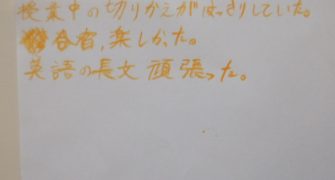 授業中の切りかえがはっきりしていた。
合宿、楽しかった。
英語の長文頑張った。